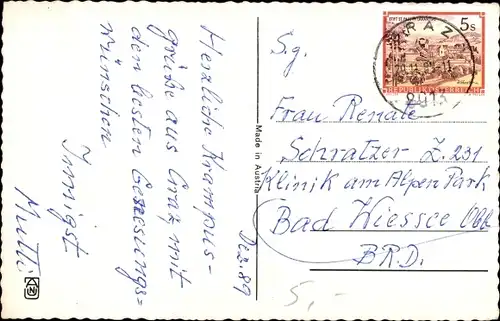 Herzliche Krampus-
grüße aus Graz mit
den besten Genesungs=
wünschen
Innigst
Mutti
Dez. 89
Made in Austria
5s
REPUBLIK ÖSTERREICH
GRAZ
Sg.
Frau Renate
Schratzer Z. 231
Klinik am Alpen Park
Bad Wiessee Obb
BRD.
5,-